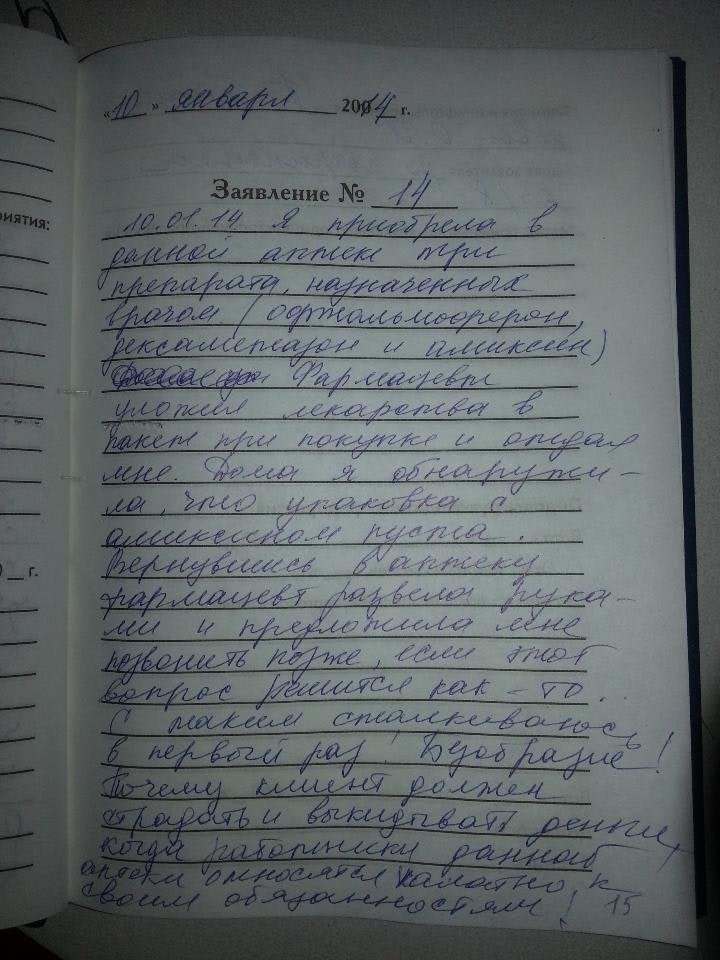 «10» января 2014 г.
Заявление № 14
риятия:
10.01.14 Я приобрела в
данной аптеке три
препарата, назначенных
врачом (офтальмоферон,
дексаметазон и амиксин)
Фармацевт
уложил лекарства в
пакет при покупке и отдал
мне. Дома я обнаружи-
ла, что упаковка с
амиксином пуста.
Вернувшись в аптеку
фармацевт развела рука-
ми и предложила мне
позвонить позже, если этот
вопрос решится как-то.
С таким сталкиваюсь
в первый раз! Безобразие!
Почему клиент должен
страдать и выкидывать деньги,
когда работники данной
аптеки относятся халатно к
своим обязанностям!
15
г.